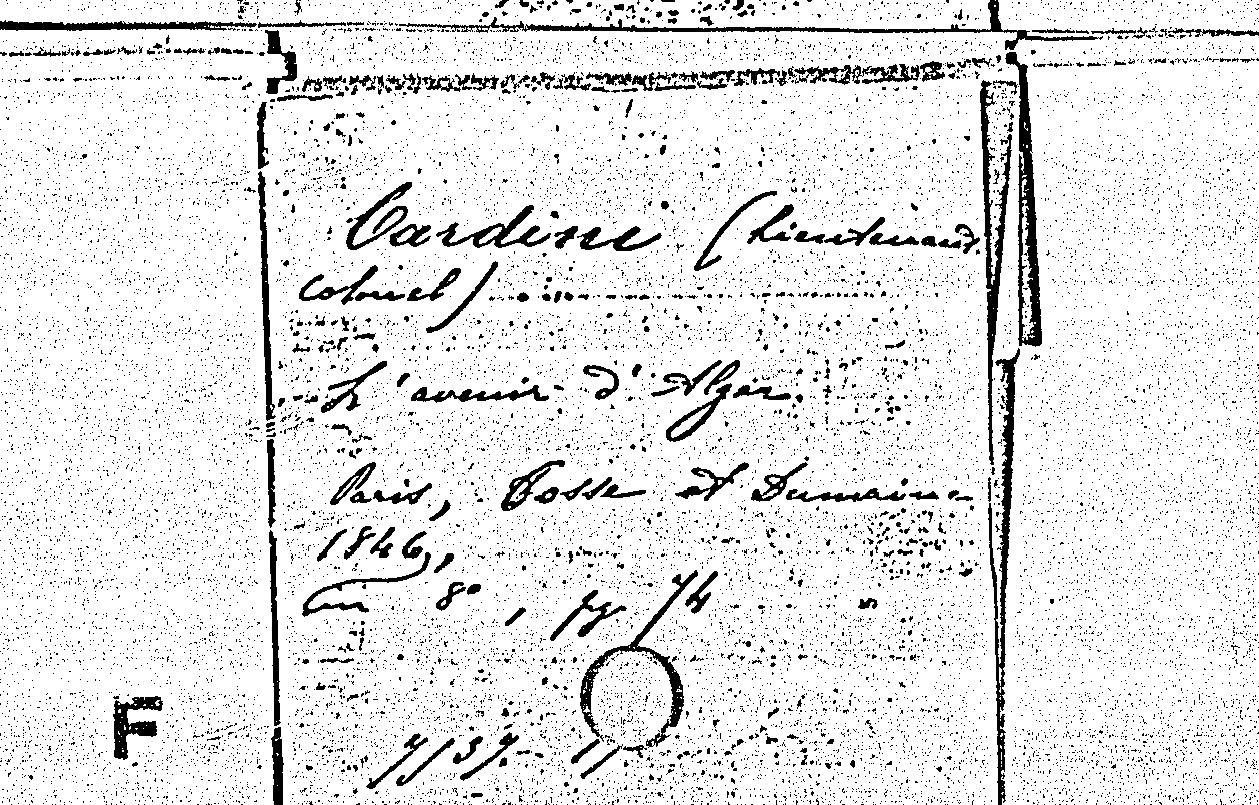 Cardini (Lieutenant
colonel)
L'avenir d'Alger.
Paris, Cosse et Dumaine
1846,
in 8°, pg 74
F